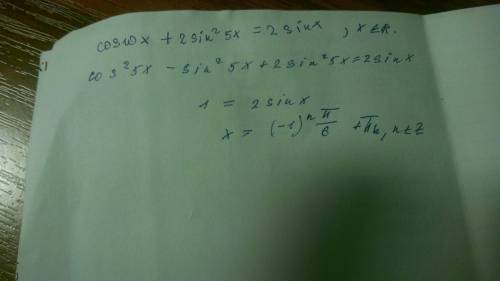 cos10x + 2sin²5x = 2sinx , x∈R.
cos²5x - sin²5x + 2sin²5x = 2sinx
1 = 2sinx
x = (-1)ⁿ π/6 + πn, n∈Z